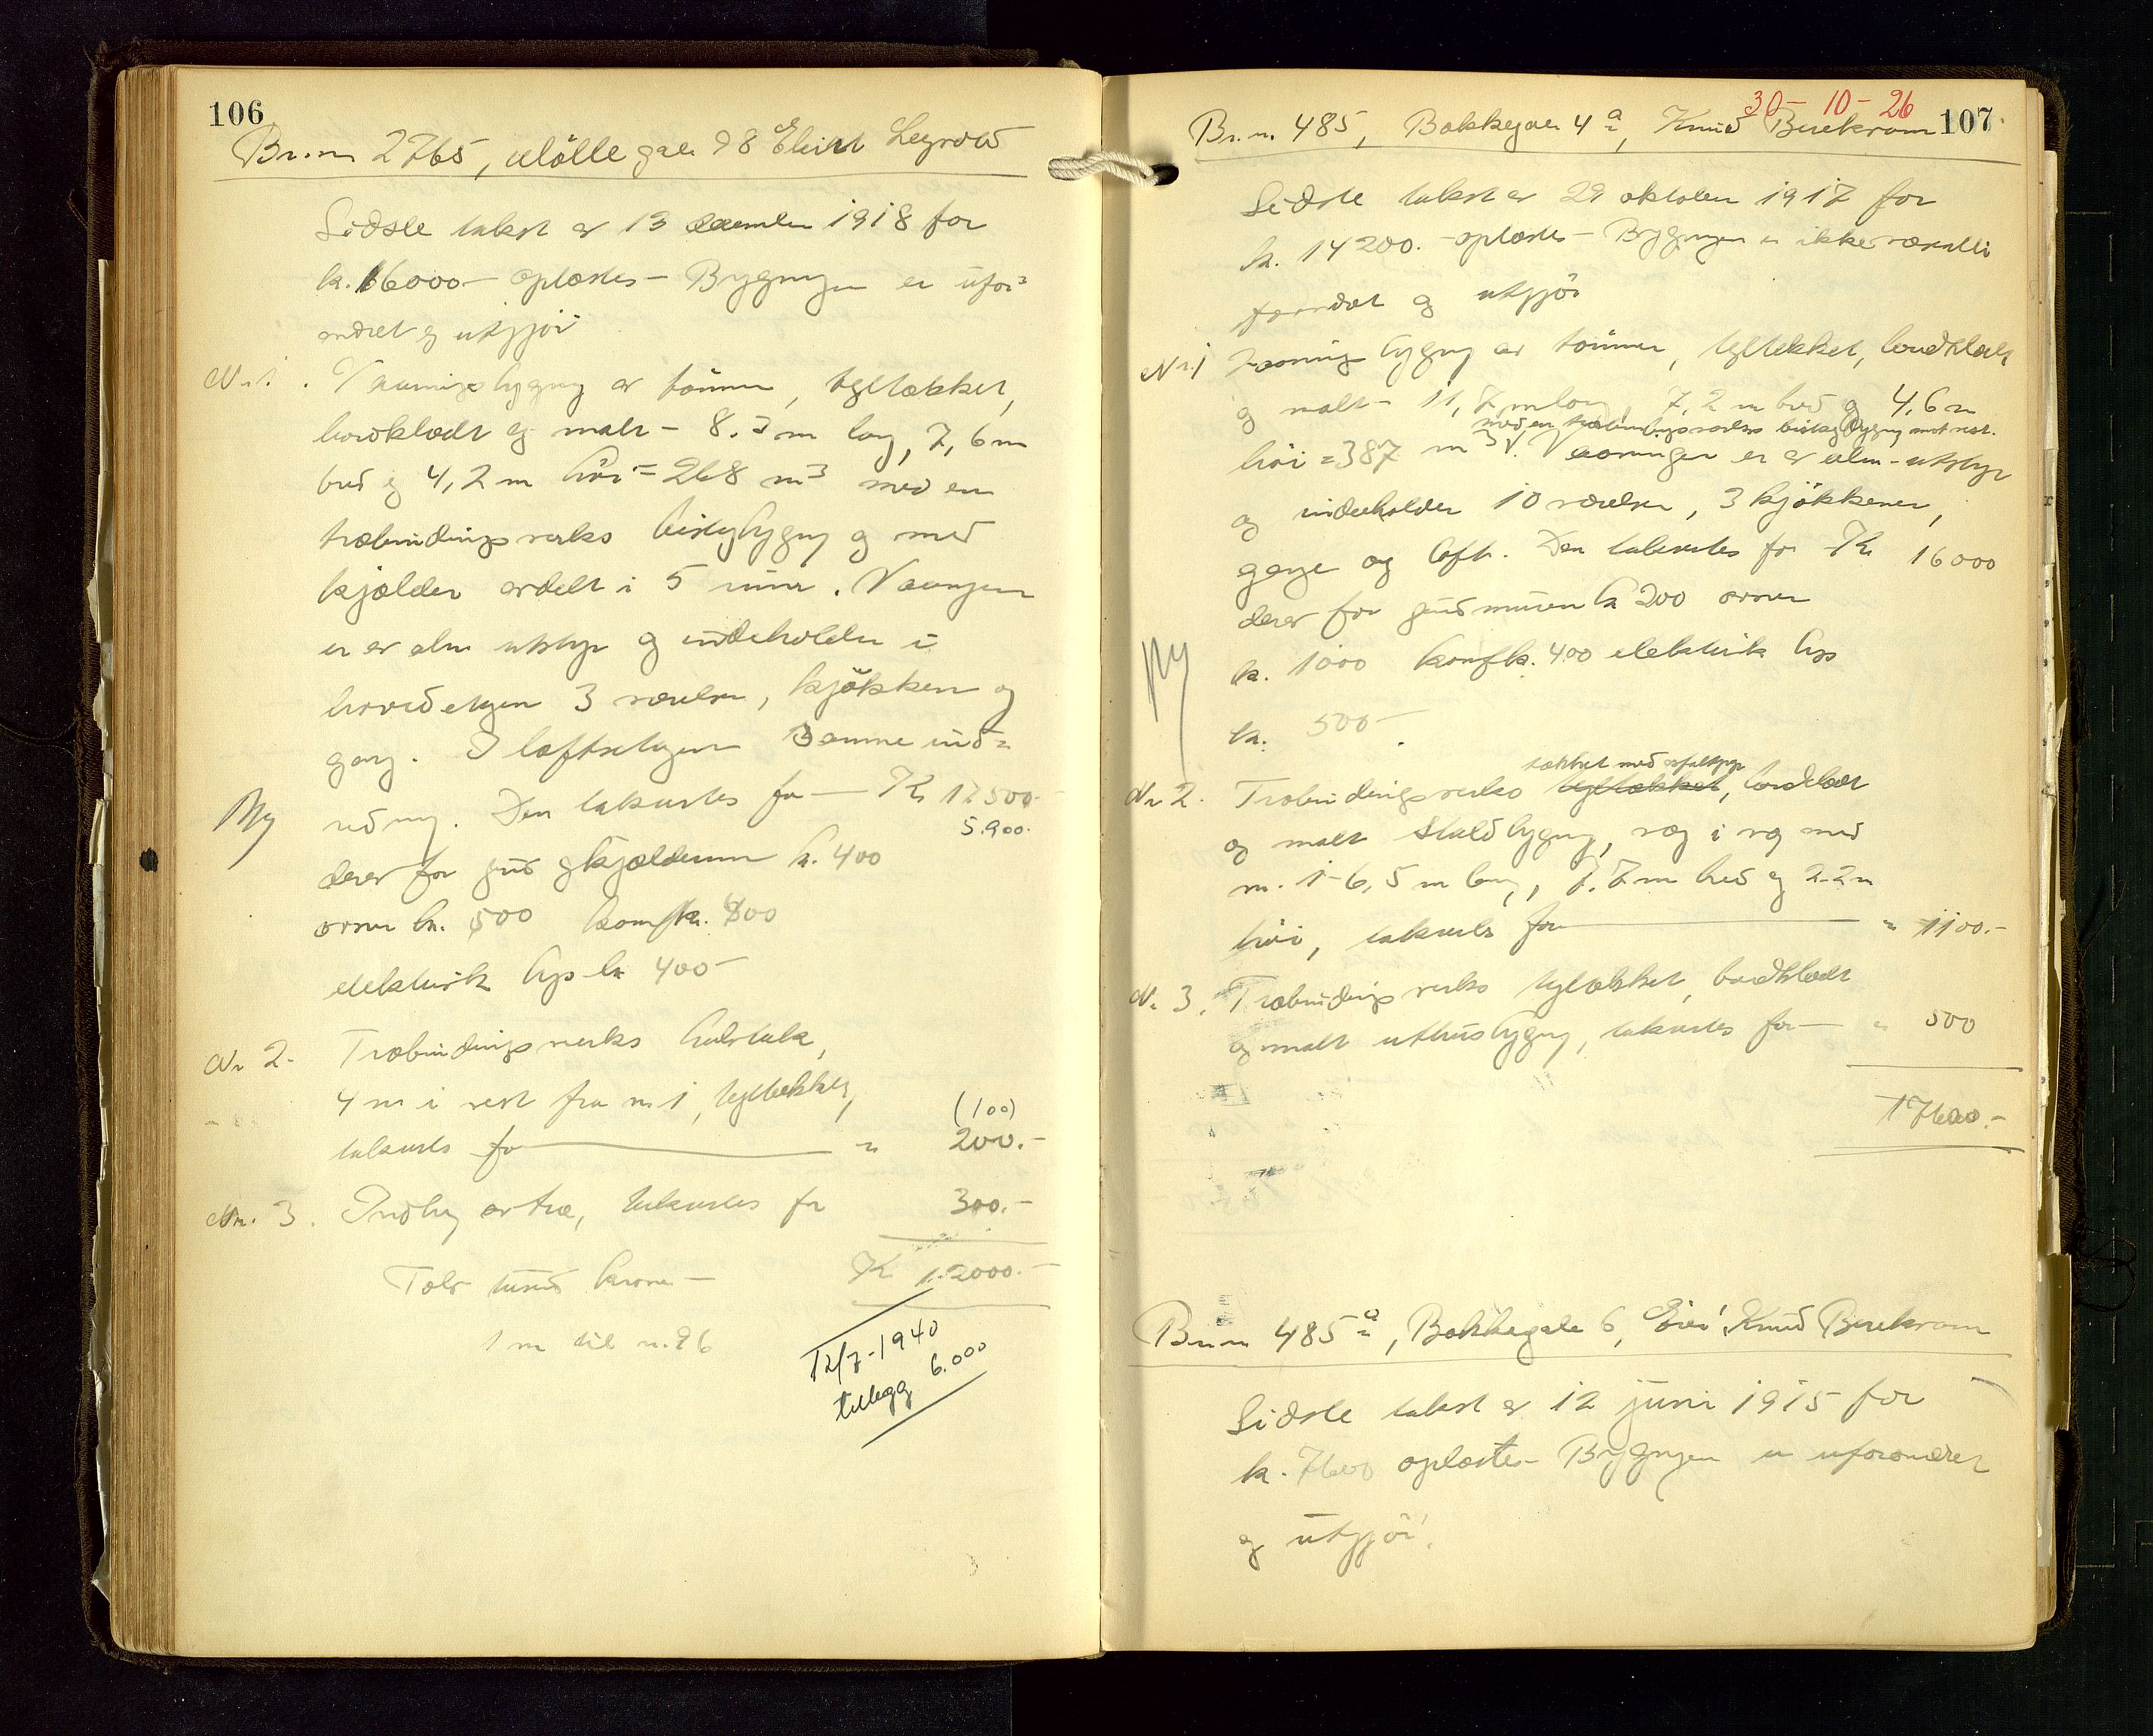 106
Br.nr 2765, Møllegate 98 Elvint Legrold
Sidste takst er 13 december 1918 for
kr. 16000.- oplæstes - Bygningen er ufor=
andret og utgjør
Nr. 1. Vaaningsbygning av tømmer, tegltækket,
bordklædt og malt - 8.3 m lang, 7,6 m
bred og 4,2 m høi = 268 m³ med en
træbindingsverks bislagbygning og med
kjælder avdelt i 5 rum. Vaaningen
er av alm utstyr og indeholder i
hovedetagen 3 værelser, kjøkken og
gang. I loftsetagen samme ind=
Ny
redning. Den takseres for — Kr 12500.-
5.900.
derav for grund og kjældermur kr. 400
ovner kr. 500 komf kr. 400
elektrisk lys kr 400.-
Nr 2. Træbindingsverks halvtak,
4 m i vest fra nr. 1, tegltækket,
(100)
takseres for — " 200.-
Nr. 3. Indheg av træ, takseres for 300.-
Tolv tusind kroner — Kr 12000.-
1 m til nr. 96
12/7-1940
tillegg 6.000
30-10-26
107
Br.nr. 485, Bakkegaten 4 a, Knud Birekram
Sidste takst er 29 oktober 1917 for
kr. 14200.- oplæstes - Bygningen er ikke væsentli
forandret og utgjør
Nr. 1 Vaaningsbygning av tømmer, tegltækket, bordklædt
og malt - 11,7 m lang 7,2 m bred og 4,6 m
med en træbindingsverks bislagbygning mot vest.
høi = 387 m³ V. Vaaningen er av alm. utstyr
og indeholder 10 værelser, 3 kjøkkener,
gange og loft. Den takseres for Kr 16000
derav for grundmuren kr 200 ovner
Ny
kr. 1000 komf kr. 400 elektrisk lys
kr. 500.-
tækket med asfaltpap
Nr 2. Træbindingsverks tegltækket, bordklædt
og malt staldbygning, væg i væg med
nr. 1 - 6,5 m lang, 7.7 m bred og 2.2 m
høi, takseres for — " 1100.-
Nr 3. Træbindingsverks tegltækket, bordklædt
og malt uthusbygning, takseres for — " 500
17600.-
Br.nr 485 a, Bakkegate 6, Eier: Knud Birekram
Sidste takst er 12 juni 1915 for
kr. 7600 oplæstes - Bygningen er uforandret
og utgjør: